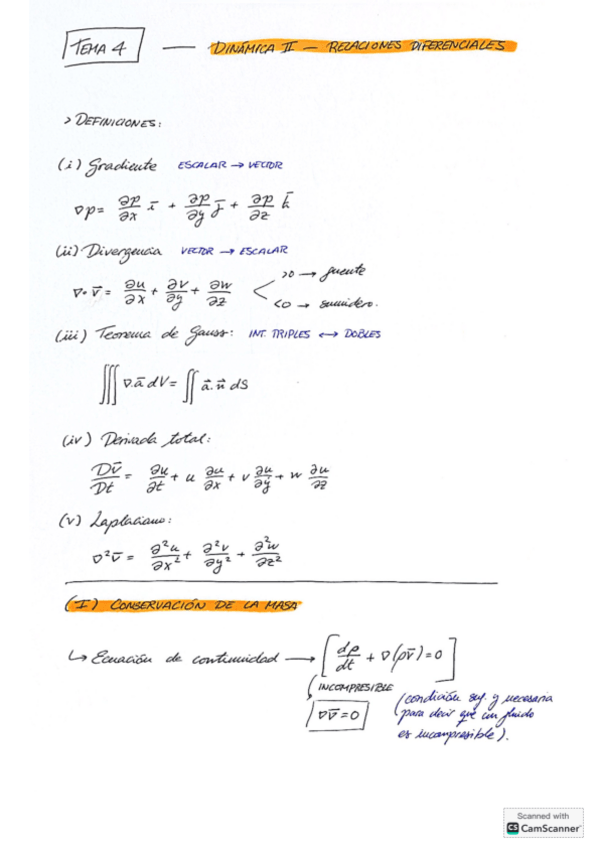 TEMA 4 — DINÁMICA II — RELACIONES DIFERENCIALES
> DEFINICIONES:
(i) Gradiente ESCALAR → VECTOR
∇p = ∂p/∂x i̅ + ∂p/∂y j̅ + ∂p/∂z k̅
(ii) Divergencia VECTOR → ESCALAR
∇• v̅ = ∂u/∂x + ∂v/∂y + ∂w/∂z
>0 → fuente
<0 → sumidero.
(iii) Teorema de Gauss: INT. TRIPLES ↔ DOBLES
∭ ∇.a̅ dV = ∬ a̅.n̅ dS
(iv) Derivada total:
Dv̅/Dt = ∂u/∂t + u ∂u/∂x + v ∂u/∂y + w ∂u/∂z
(v) Laplaciano:
∇²v̅ = ∂²u/∂x² + ∂²v/∂y² + ∂²w/∂z²
(I) CONSERVACIÓN DE LA MASA
↳ Ecuación de continuidad → [dρ/dt + ∇(ρv̅) = 0]
INCOMPRESIBLE
∇v̅ = 0
(condición suf. y necesaria
para decir que un fluido
es incompresible).
Scanned with
CS CamScanner